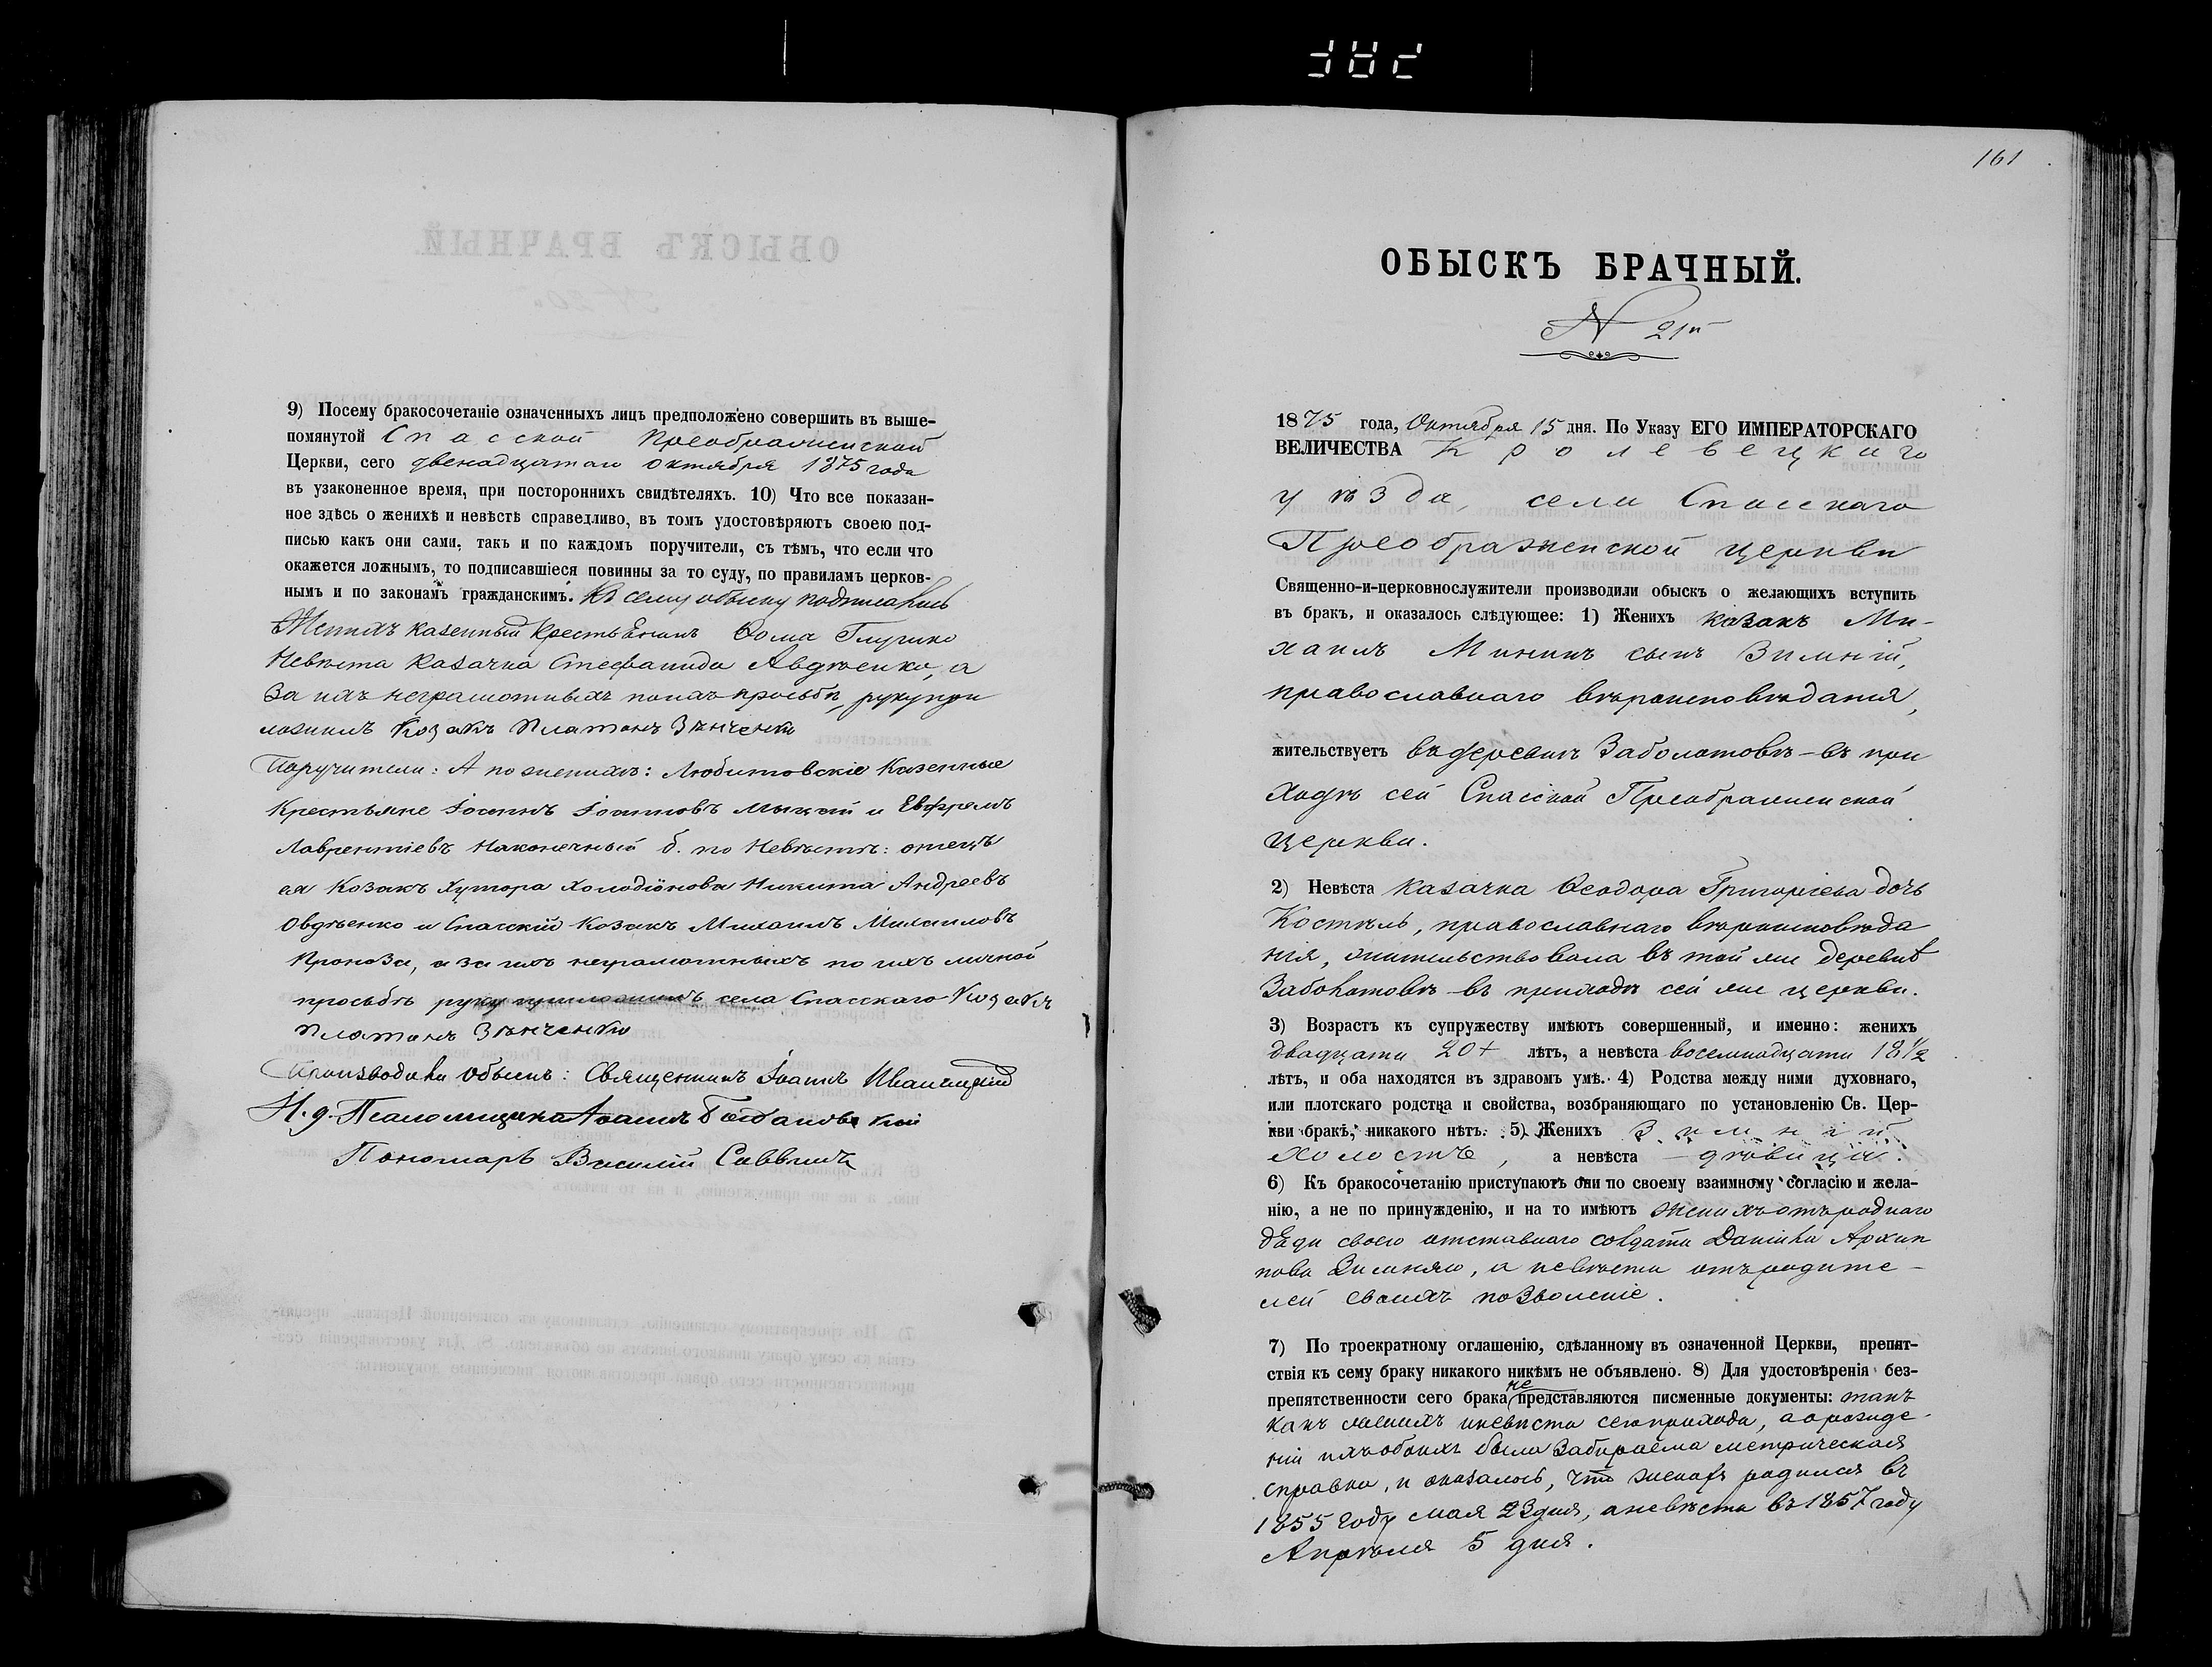 9) Посему бракосочетаніе означенныхъ лицъ предположено совершить въ выше-
помянутой Спасской Преображенской
Церкви, сего двенадцатаго октября 1875 года
въ узаконенное время, при постороннихъ свидѣтеляхъ. 10) Что все показан-
ное здѣсь о женихѣ и невѣстѣ справедливо, въ томъ удостовѣряютъ своею под-
писью какъ они сами, такъ и по каждомъ поручители, съ тѣмъ, что если что
окажется ложнымъ, то подписавшіеся повинны за то суду, по правиламъ церков-
нымъ и по законамъ гражданскимъ. Къ сему обыску подписались
Женихъ казенный крестьянинъ Ѳома Глушко
Невѣста казачка Стефанида Авдѣенко, а
за ихъ неграмотныхъ по ихъ просьбѣ, руку при
ложилъ Козакъ Платонъ Зѣнченко
Поручители: А по женихѣ: Любитовскіе Казенные
Крестьяне Іосифъ Іоанновъ и Евфремъ
Лаврентіевъ Наконечный б. по Невѣстѣ: отецъ
ея Козакъ Хутора Холодіонова Никита Андреевъ
Овдѣенко и Спасскій Козакъ Михаилъ Михаиловъ
Проноза, а за ихъ неграмотныхъ по ихъ личной
просьбѣ руку приложилъ села Спасскаго Козакъ
Платонъ Зѣнченко
Производили обыскъ: Священникъ Іоаннъ
И. д. Псаломщика Іоаннъ Богдановскій
Пономарь Василій Саввичъ
161
ОБЫСКЪ БРАЧНЫЙ.
N 21й
1875 года, Октября 15 дня. По Указу ЕГО ИМПЕРАТОРСКАГО
ВЕЛИЧЕСТВА Кролевецкаго
уѣзда, села Спасскаго
Преображенской церкви
Священно-и-церковнослужители производили обыскъ о желающихъ вступить
въ бракъ, и оказалось слѣдующее: 1) Женихъ козакъ Ми-
хаилъ Мининъ сынъ Зимній,
православнаго вѣроисповѣданія,
жительствуетъ въ деревнѣ Заболотовѣ - въ при
ходѣ сей Спасской Преображенской
церкви.
2) Невѣста казачка Ѳеодора Григоріева дочь
Костѣль, православнаго вѣроисповѣда
нія, жительствовала въ той же деревнѣ
Заболотовѣ - въ приходѣ сей же церкви.
3) Возрастъ къ супружеству имѣютъ совершенный, и именно: женихъ
двадцати 20+ лѣтъ, а невѣста восемнадцати 18 1/2
лѣтъ, и оба находятся въ здравомъ умѣ. 4) Родства между ними духовнаго,
или плотскаго родства и свойства, возбраняющаго по установленію Св. Цер-
кви бракъ, никакого нѣтъ. 5) Женихъ Зимній
холостъ, а невѣста - дѣвица.
6) Къ бракосочетанію приступаютъ они по своему взаимному согласію и жела-
нію, а не по принужденію, и на то имѣютъ женихъ отъ роднаго
дяди своего отставнаго солдата Даніила Архип
пова Зимняго, а невѣста отъ родите-
лей своихъ позволеніе.
7) По троекратному оглашенію, сдѣланному въ означенной Церкви, препят-
ствія къ сему браку никакого никѣмъ не объявлено. 8) Для удостовѣренія без-
препятственности сего брака не представляются писменные документы: такъ
какъ женихъ и невѣста сего прихода, а о рожде-
ніи ихъ обоихъ была забираема метрическая
справка, и оказалось, что женихъ родился въ
1855 году мая 23 дня, а невѣста въ 1857 году
Апрѣля 5 дня.